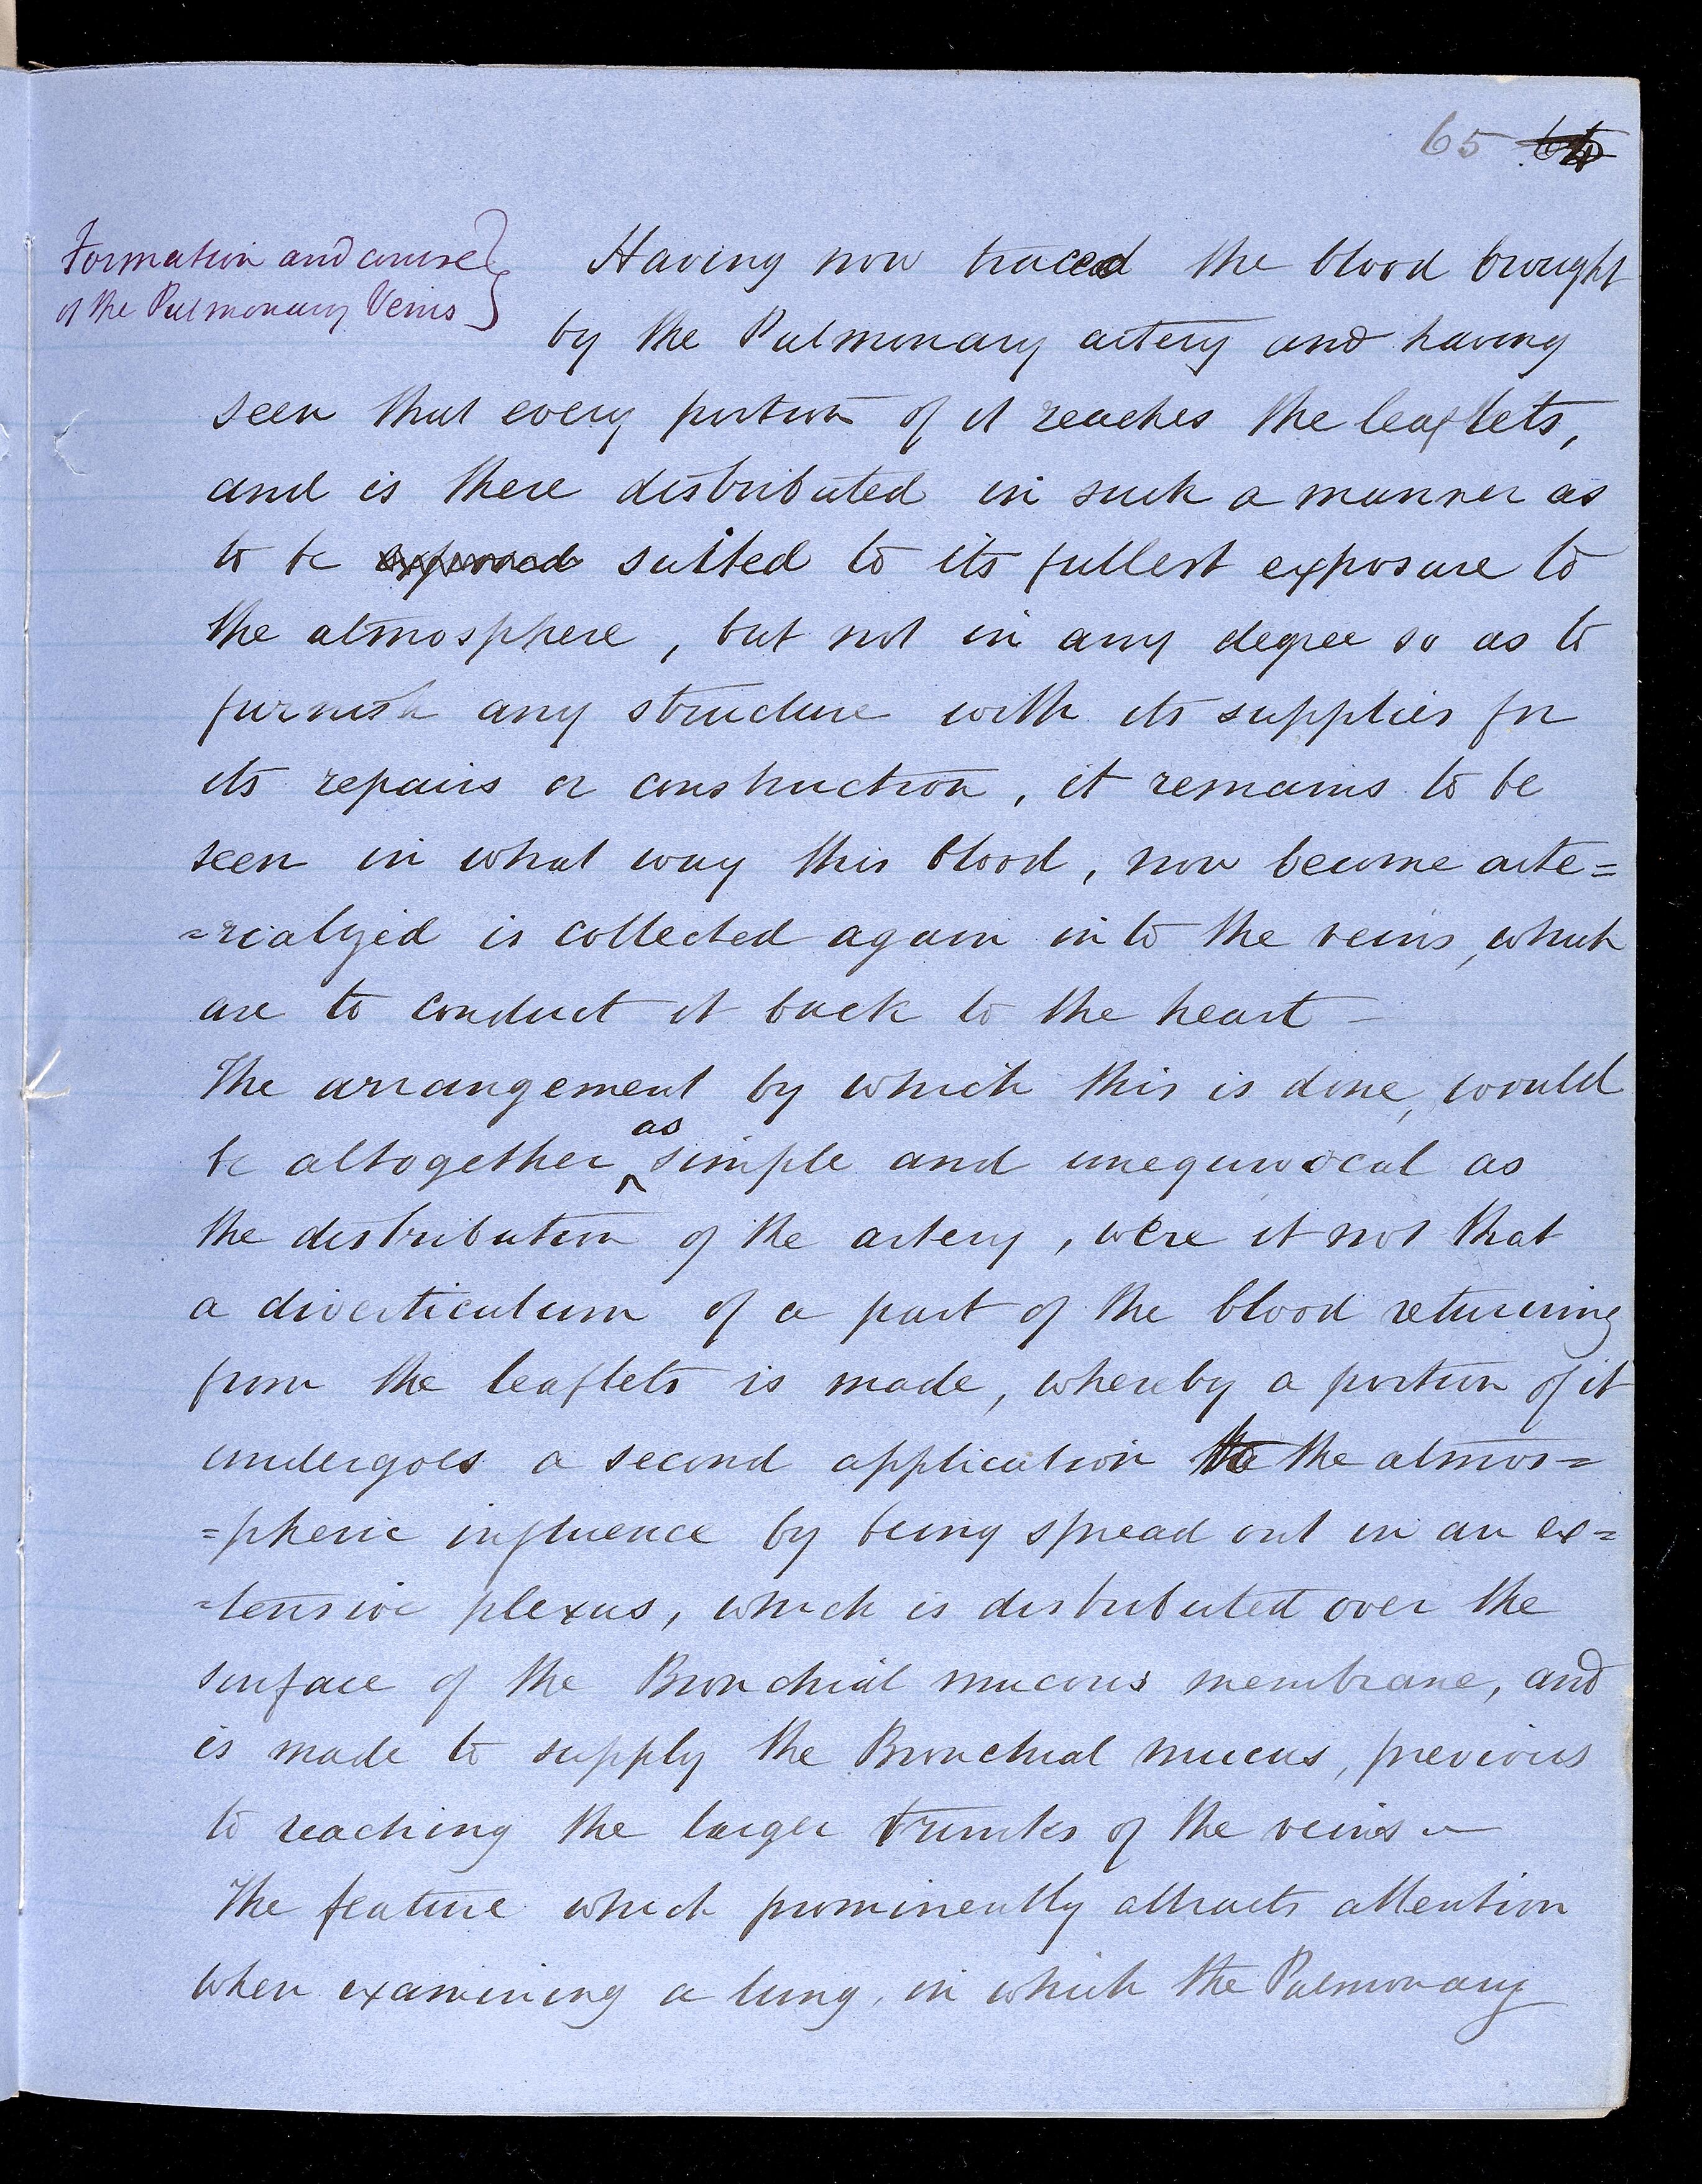 65
Formation and course
of the Pulmonary Veins
Having now traced the blood brought
by the Pulmonary artery and having
seen that every portion of it reaches the leaflets,
and is there distributed in such a manner as
to be exposed suited to its fullest exposure to
the atmosphere, but not in any degree so as to
furnish any structure with its supplies for
its repairs or construction, it remains to be
seen in what way this blood, now become arte=
=rialyzed is collected again into the veins, which
are to conduct it back to the heart –
The arrangement by which this is done, would
be altogether as simple and unequivocal as
the distribution of the artery, were it not that
a diverticulum of a part of the blood returning
from the leaflets is made, whereby a portion of it
undergoes a second application to the atmos=
=pheric influence by being spread out in an ex=
=tensive plexus, which is distributed over the
surface of the Bronchial mucous membrane, and
is made to supply the Bronchial mucus, previous
to reaching the larger trunks of the veins –
The feature which prominently attracts attention
when examining a lung, in which the Pulmonary